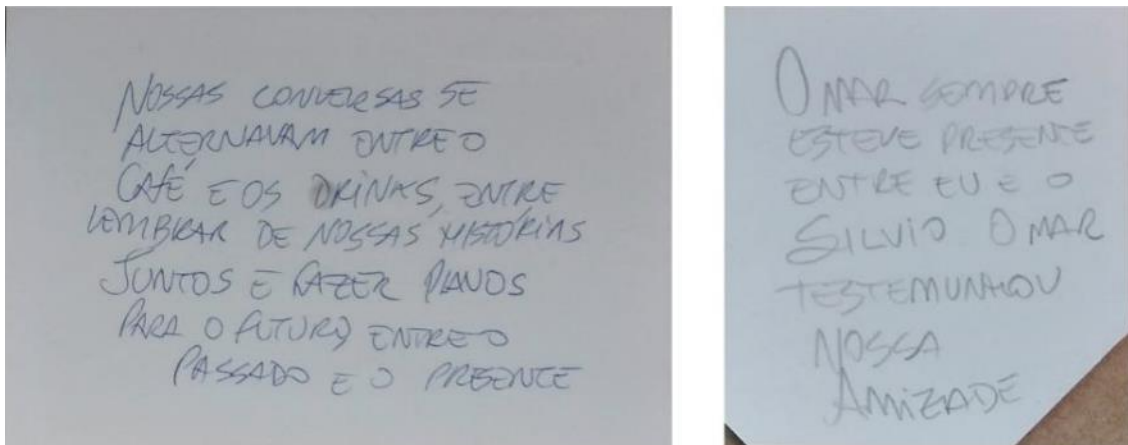 NOSSAS CONVERSAS SE
ALTERNAVAM ENTRE O
CAFÉ E OS DRINKS, ENTRE
LEMBRAR DE NOSSAS HISTÓRIAS
JUNTOS E FAZER PLANOS
PARA O FUTURO, ENTRE O
PASSADO E O PRESENTE
O MAR SEMPRE
ESTEVE PRESENTE
ENTRE EU E O
SILVIO O MAR
TESTEMUNHOU
NOSSA
AMIZADE